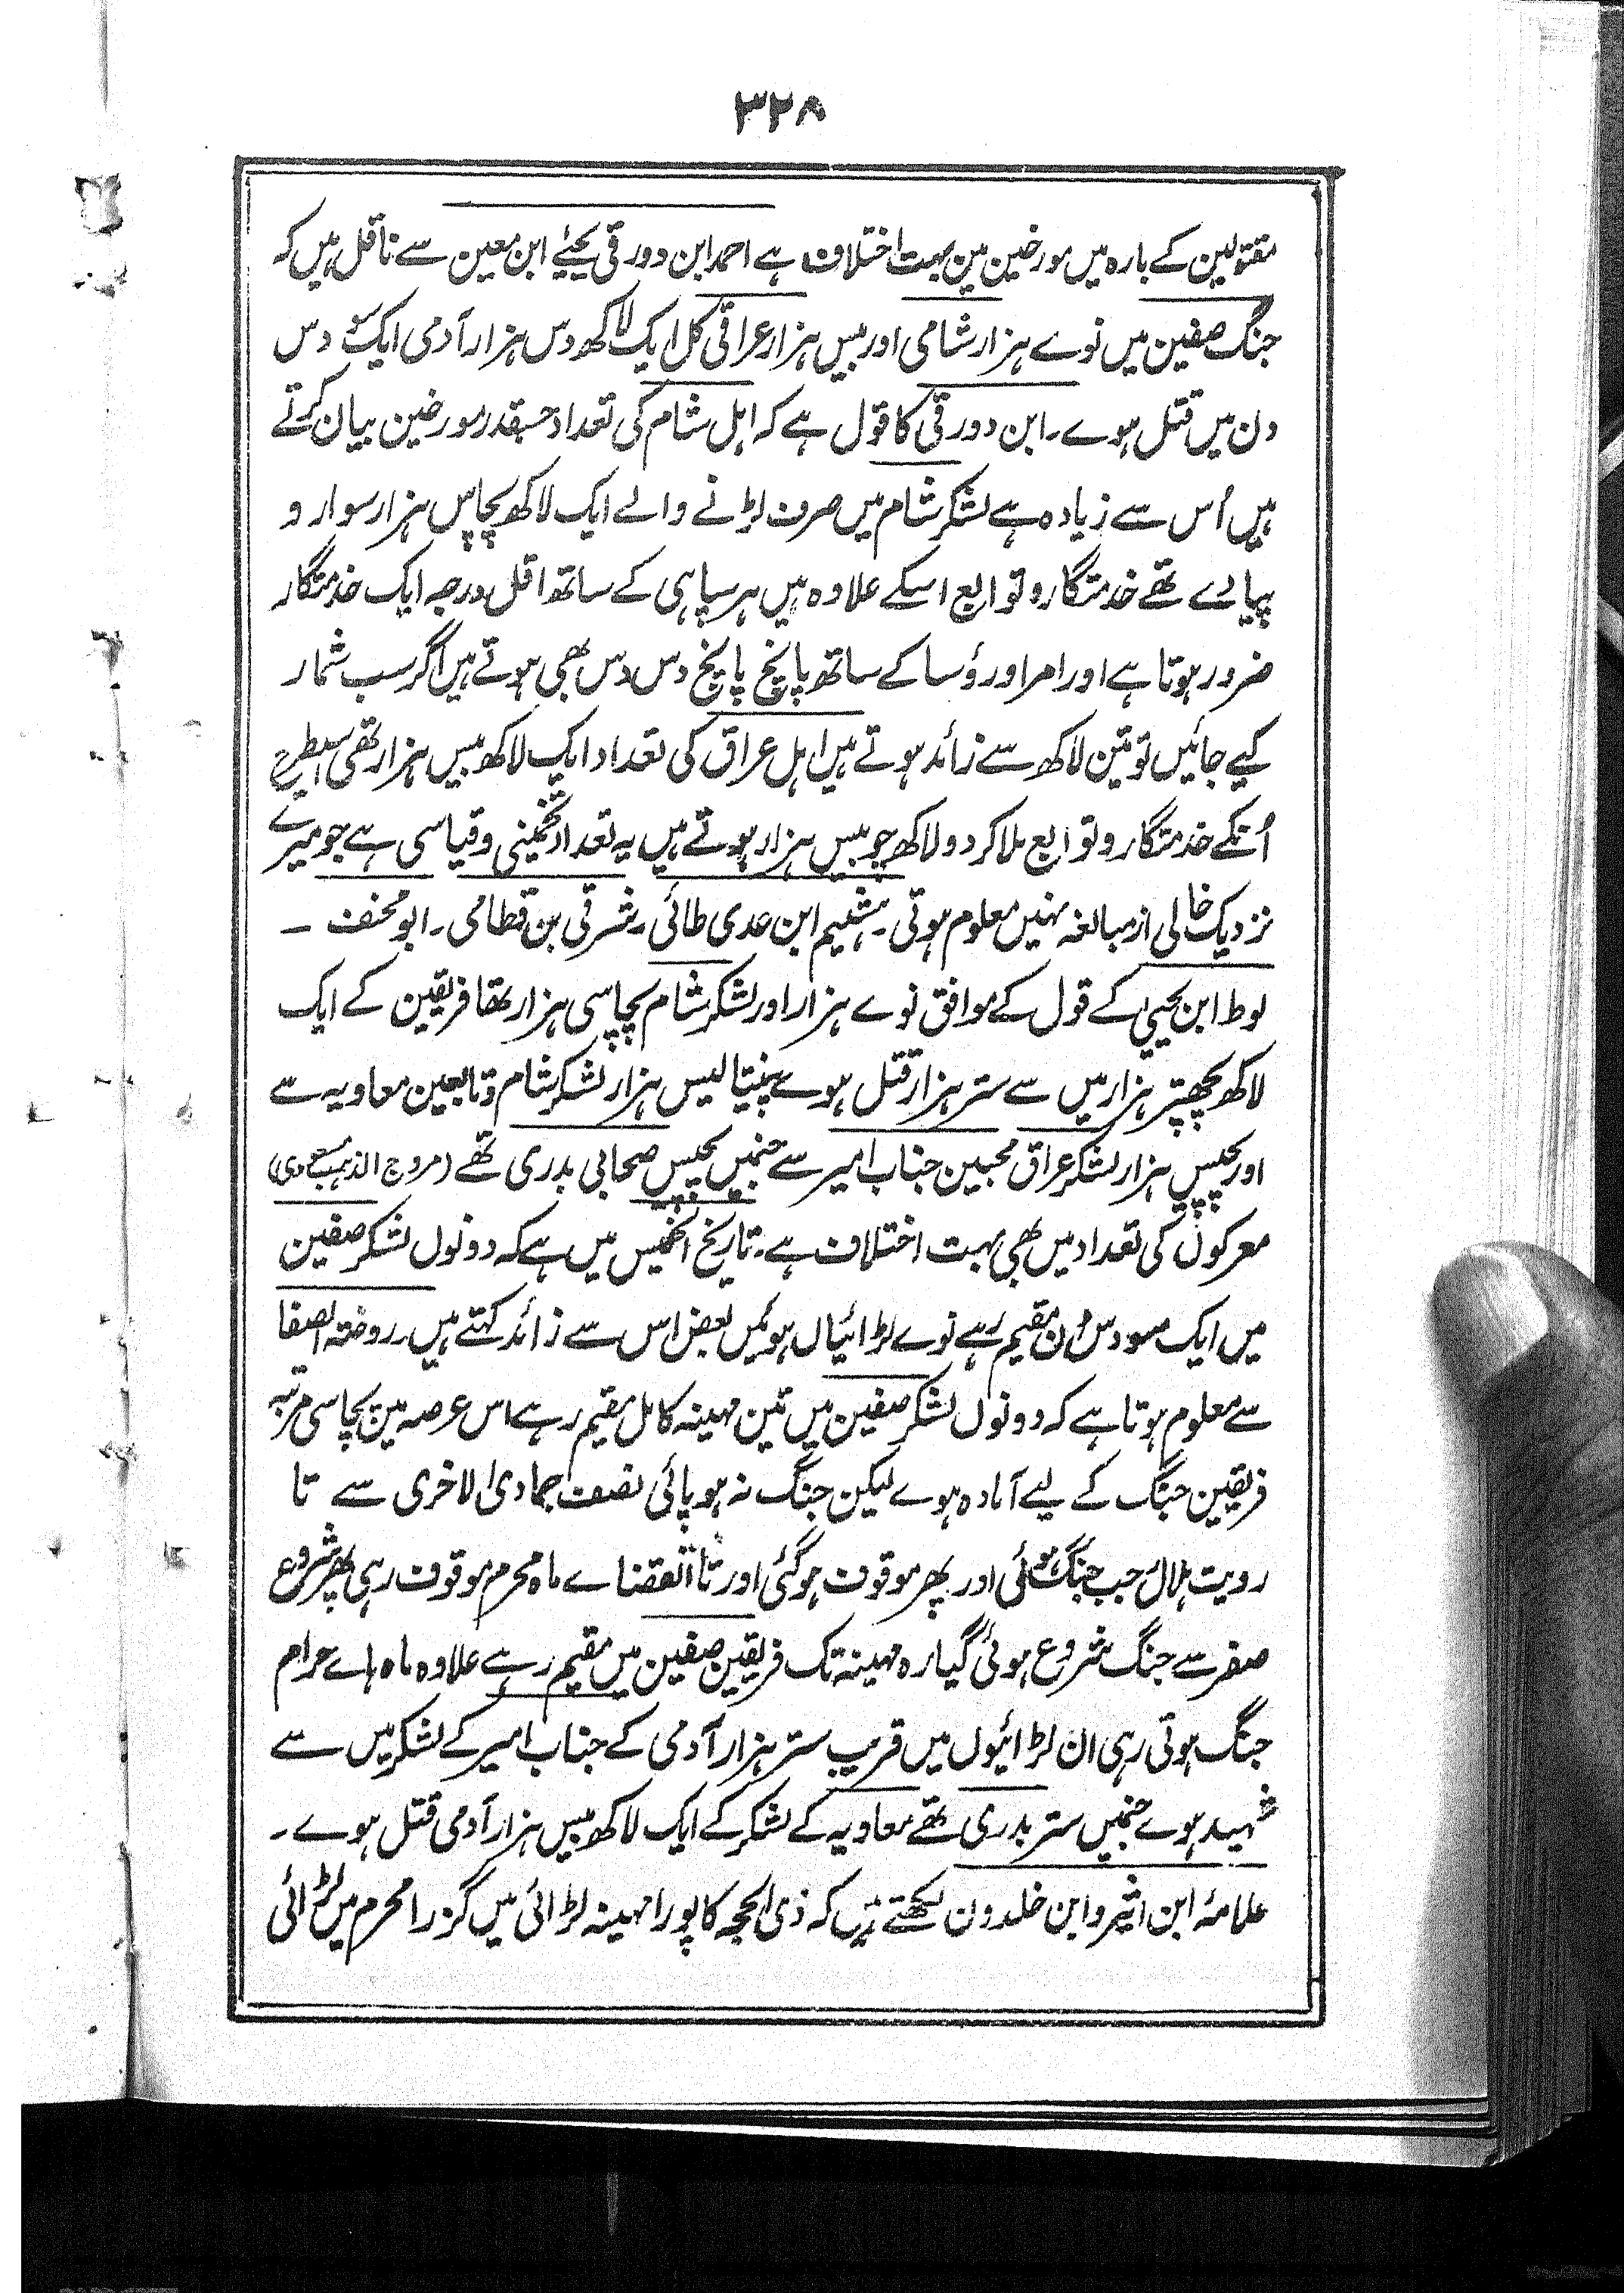 ۳۲۸
مقتولین کے بارہ میں مورخین مین بہت اختلاف ہے احمد ابن دورقی یحیٰے ابن معین سے ناقل ہیں کہ
جنگ صفین میں نوے ہزار شامی اور بیس ہزار عراقی کل ایک لاکھ دس ہزار آدمی ایک سو دس
دن میں قتل ہوے۔ ابن دورقی کا قول ہے کہ اہل شام کی تعداد جسقدر مورخین بیان کرتے
ہیں اُس سے زیادہ ہے لشکر شام میں صرف لڑنے والے ایک لاکھ پچاس ہزار سوار و
پیادے تھے خدمتگار و توابع اسکے علاوہ ہیں ہر سپاہی کے ساتھ اقل درجہ ایک خدمتگار
ضرور ہوتا ہے اور امرا ورؤسا کے ساتھ پانچ پانچ دس دس بھی ہوتے ہیں اگر سب شمار
کیے جائیں تو تین لاکھ سے زائد ہوتے ہیں اہل عراق کی تعداد ایک لاکھ بیس ہزار تھی اسیطرح
اُنکے خدمتگار و توابع ملا کر دو لاکھ چوبیس ہزار ہوتے ہیں یہ تعداد تخمینی و قیاسی ہے جو میرے
نزدیک خالی از مبالغہ نہیں معلوم ہوتی۔ ہشیم ابن عدی طائی۔ شرقی بن قطامی۔ ابو مخنف ۔
لوط ابن یحییٰ کے قول کے موافق نوے ہزار اور لشکر شام پچاسی ہزار تھا فریقین کے ایک
لاکھ پچھتر ہزار میں سے ستر ہزار قتل ہوے پینتالیس ہزار لشکر شام و تابعین معاویہ سے
اور پچیس ہزار لشکر عراق محبین جناب امیر سے جنمیں پچیس صحابی بدری تھے (مروج الذہب مسعودی)
معرکوں کی تعداد میں بھی بہت اختلاف ہے۔ تاریخ الخمیس میں ہے کہ دونوں لشکر صفین
میں ایک سو دس دن مقیم رہے نوے لڑائیاں ہوئیں بعض اس سے زائد کہتے ہیں۔ روضتہ الصفا
سے معلوم ہوتا ہے کہ دونوں لشکر صفین میں تین مہینہ کامل مقیم رہے اس عرصہ میں پچاسی مرتبہ
فریقین جنگ کے لیے آمادہ ہوے لیکن جنگ نہ ہو پائی نصف جمادی الاخری سے تا
رویت ہلال رجب جنگ ہوئی اور پھر موقوف ہوگئی اور تا انقضاے ماہ محرم موقوف رہی پھر شروع
صفر سے جنگ شروع ہوئی گیارہ مہینہ تک فریقین صفین میں مقیم رہے علاوہ ماہ ہاے حرام
جنگ ہوتی رہی ان لڑائیوں میں قریب ستر ہزار آدمی کے جناب امیر کے لشکر میں سے
شہید ہوے جنمیں ستر بدری تھے معاویہ کے لشکر کے ایک لاکھ بیس ہزار آدمی قتل ہوے۔
علامۂ ابن اثیر و ابن خلدون لکھتے ہیں کہ ذی الحجہ کا پورا مہینہ لڑائی میں گزرا محرم میں لڑائی